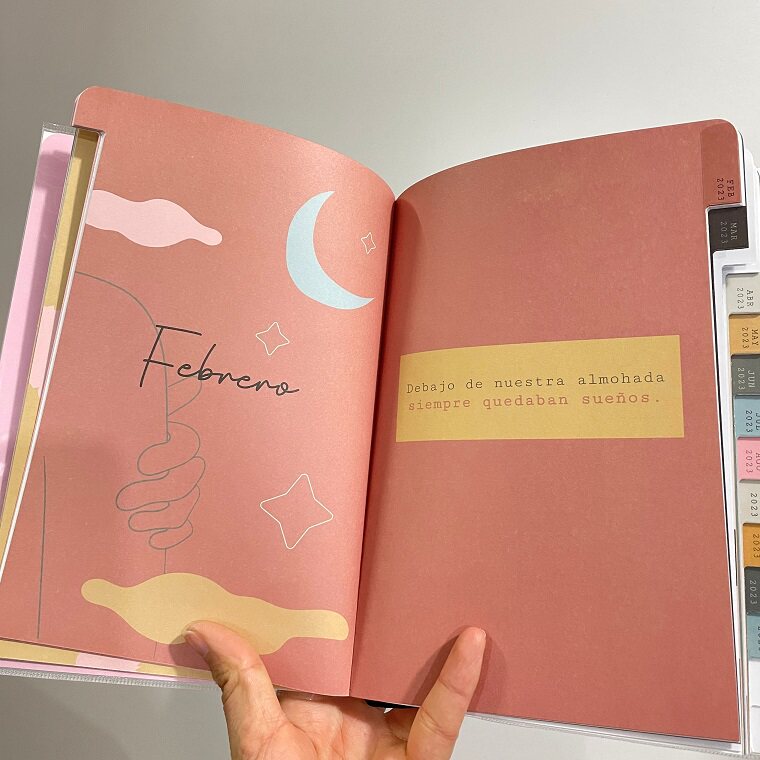 Febrero
Debajo de nuestra almohada
siempre quedaban sueños.
FEB
2023
MAR
2023
ABR
2023
MAY
2023
JUN
2023
JUL
2023
AGO
2023
2023
2023
2023